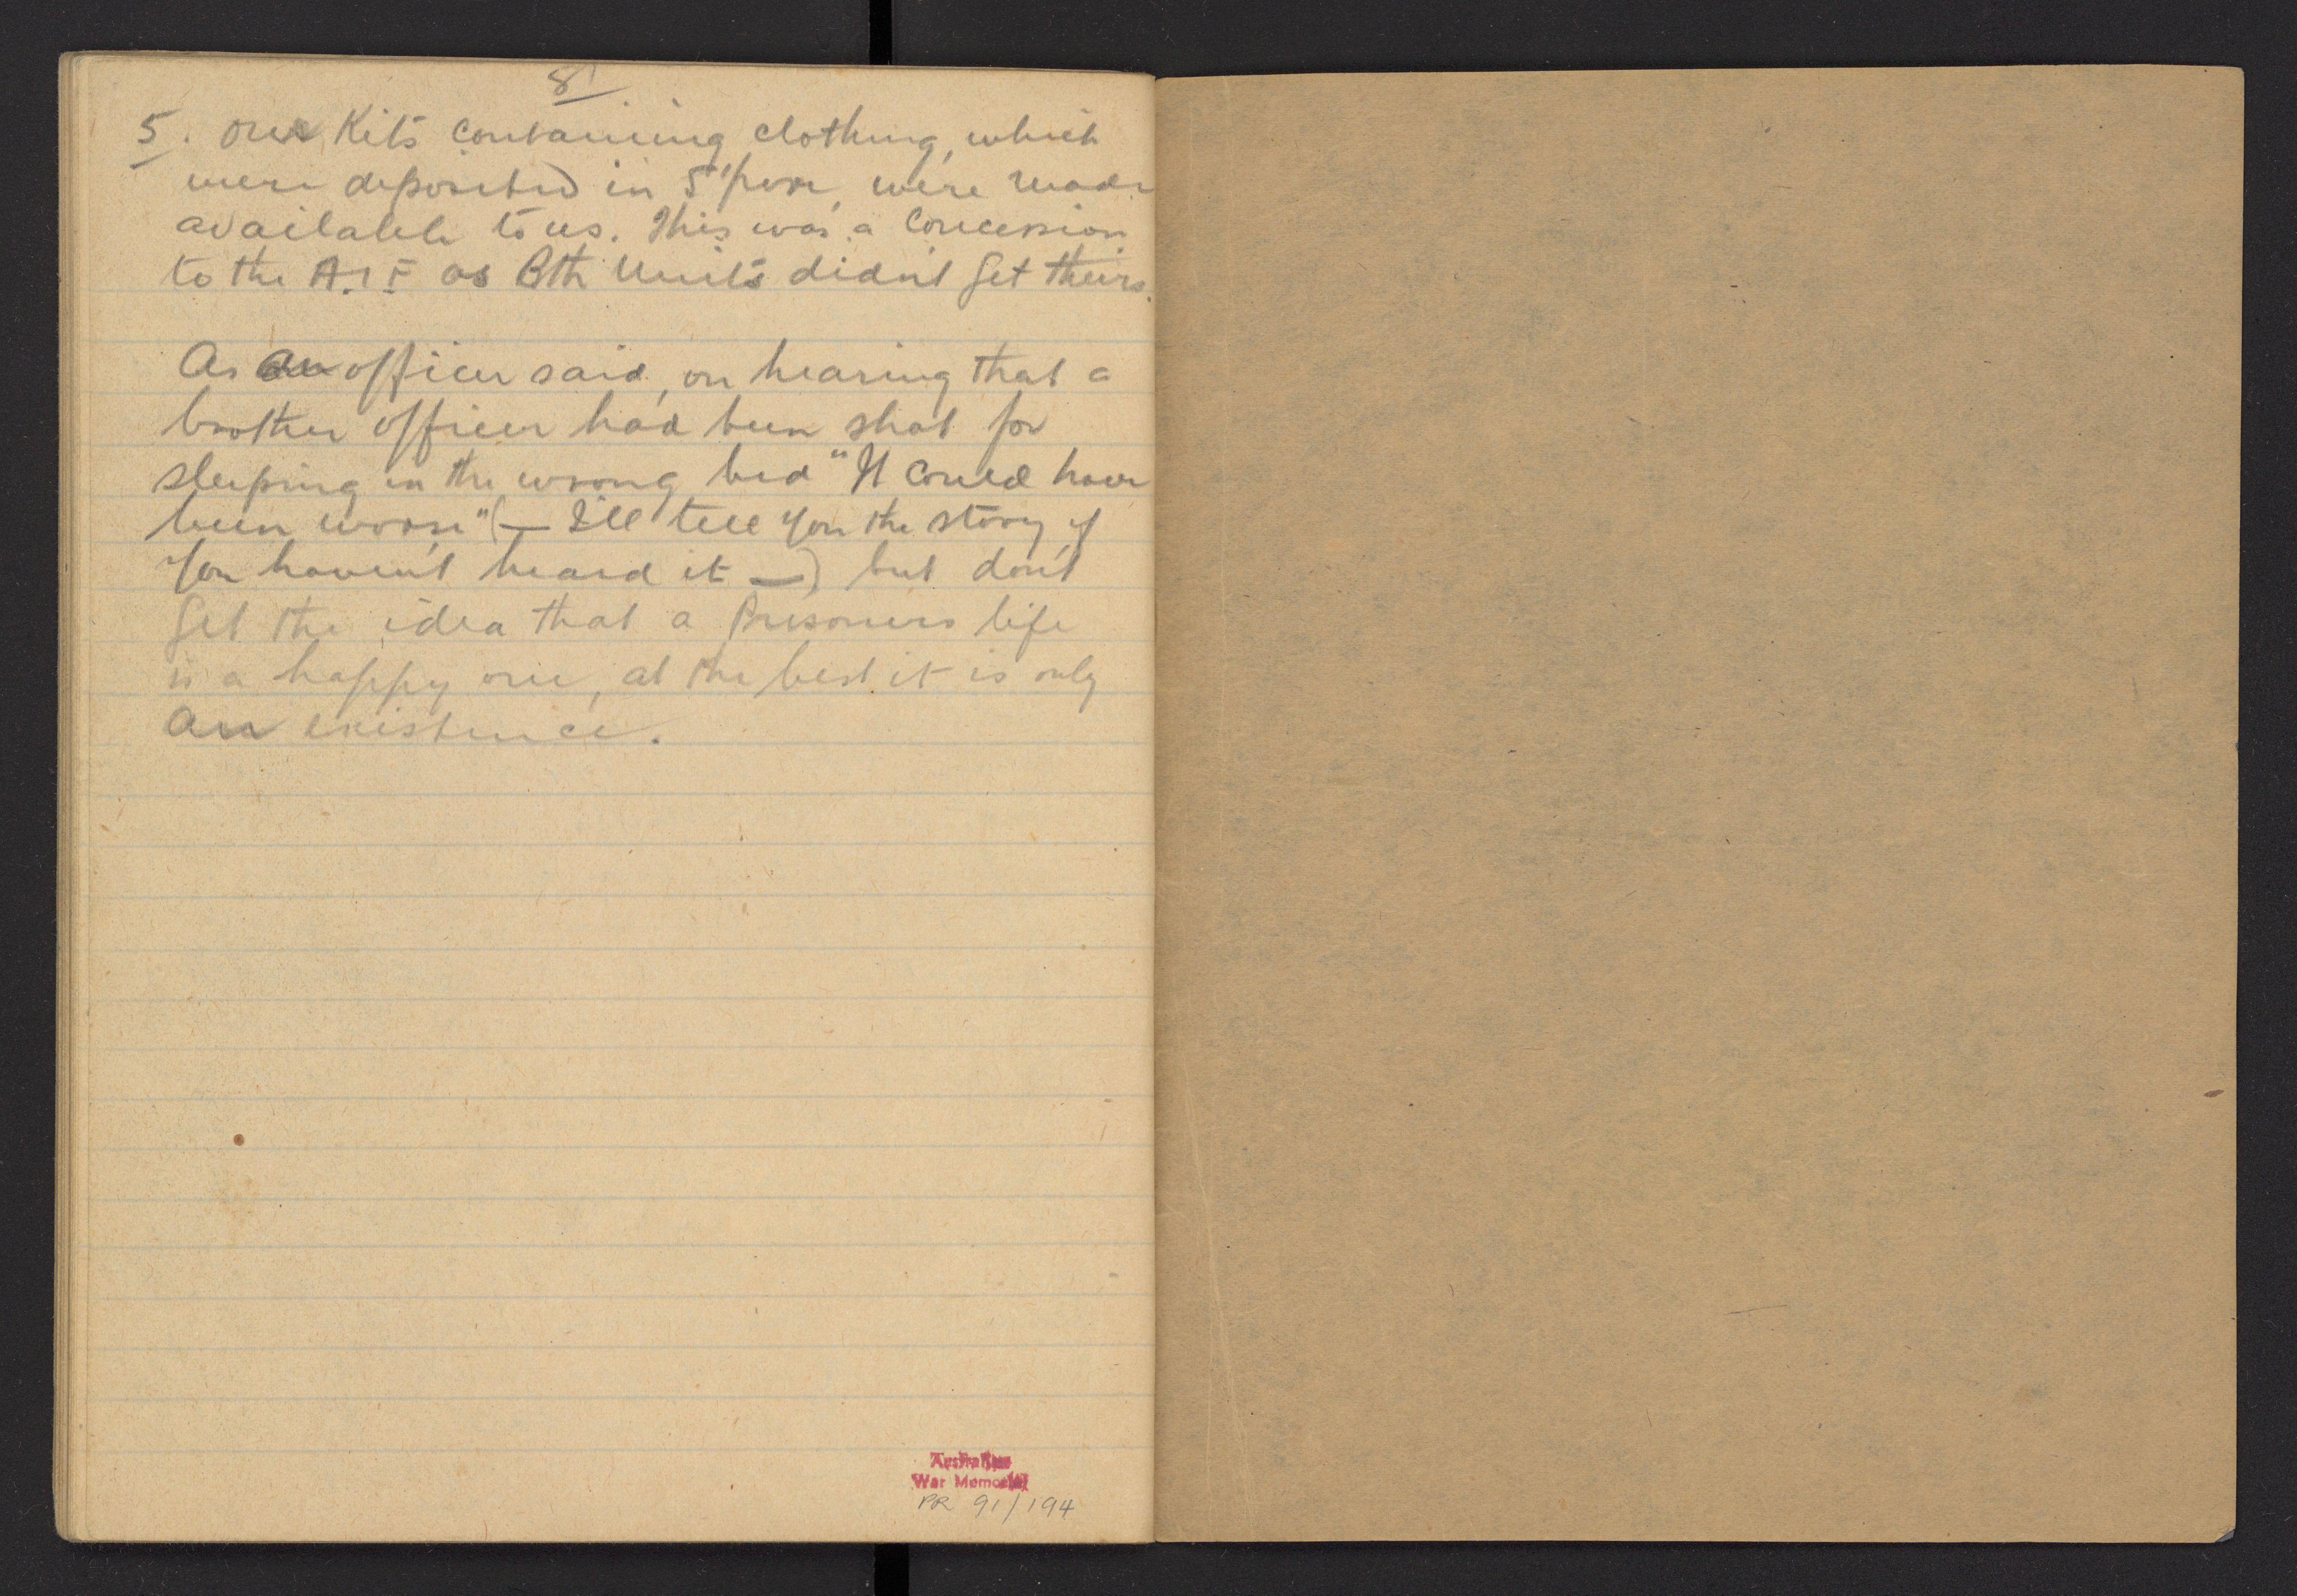 8
5. Our Kits containing clothing, which
were deposited in S'pore, were made
available to us. This was a Concession
to the A.I.F as Bth Units didn't get theirs.
As an officer said, on hearing that a
brother officer had been shot for
sleeping in the wrong bed "It could have
been worse" (— I'll tell you the story if
you haven't heard it —) but don't
get the idea that a Prisoners life
is a happy one, at the best it is only
an existence.
Australian
War Memorial
PR 91/194